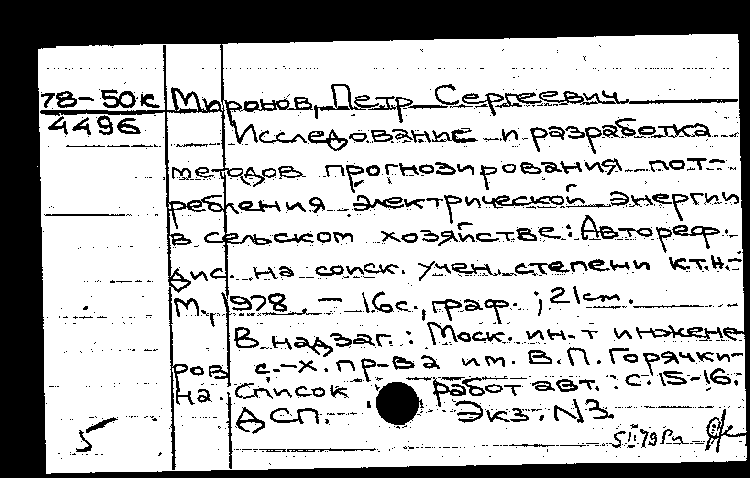 78-50к Миронов, Петр Сергеевич.
4496
Исследование и разработка
методов прогнозирования пот-
ребления электрической энергии
в сельском хозяйстве: Автореф.
дис. на соиск. учен. степени к.т.н.-
М., 1978. - 16с., граф. ; 21см.
В надзаг.: Моск. ин-т инжене-
ров с.-х. пр-ва им. В.П. Горячки-
на. Список работ авт.: с. 15-16.
ДСП. Экз. N3.
5
5 II 79